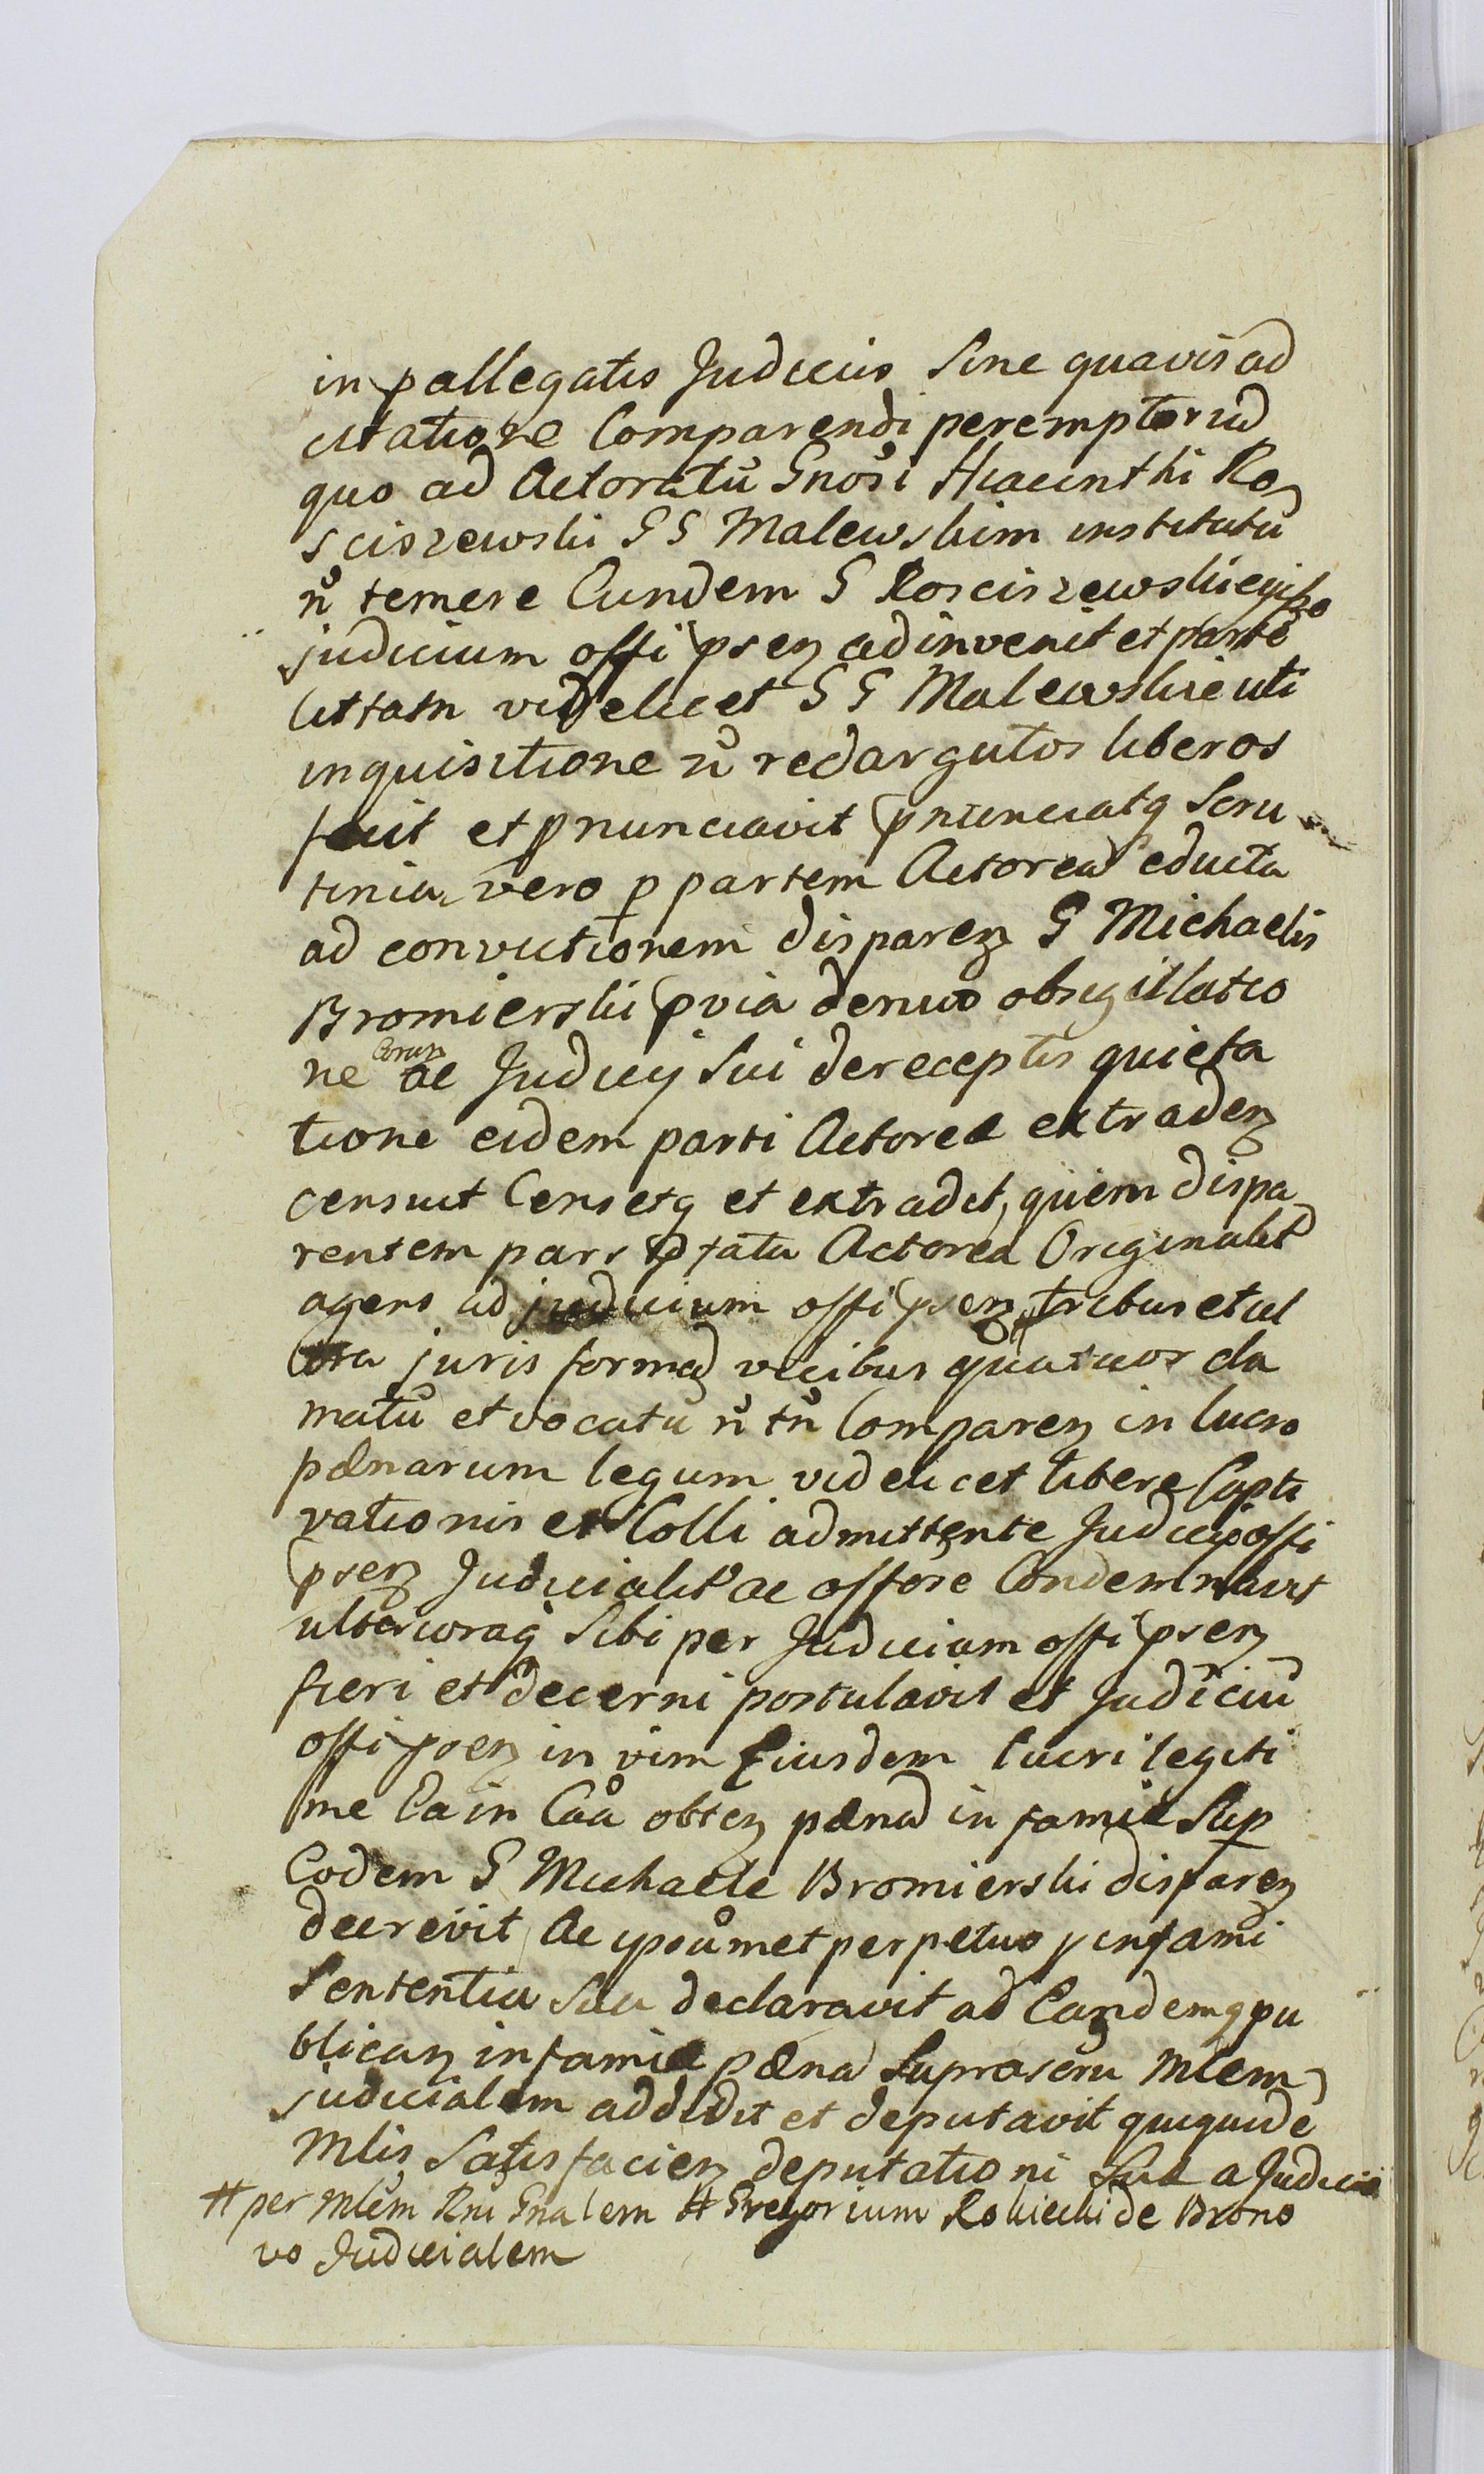 in pallegatis Judiciis Sine quavis ad
citatione Comparendi peremptoriu
quo ad Actoratū Gnosi Hiacinthi Ro
sciszewski GG Malewskim institutū
n̄ temere Eundem G Rosciszewski egisse
judicium offi psen adinvenit et partē
Cittatn videlicet GG Malewskie uti
inquisitione n̄ redargutos liberos
fecit et pnunciavit pnunciatq Scru
tinia vero p partem Actorea educta
ad convictionem disparen G Michaelis
Bromierski pvia denuo obsigillatio
ne Eorum ac Judicij Sui de receptis quieta
tione eidem parti Actoreæ extraden
censuit Censetq et extradit, quem dispa
rentem pars ptata Actorea Originalit
agens ad judicium offi psen tribus et ul
tra juris forma vicibus quatuor cla
matū et vocatū n̄ tn̄ Comparen in lucro
pænarum legum videlicet libere Capti
vationis et Colli admittente Judicio offi
psen Judicialit ac offose Condemnavit
ulterioraq Sibi per Judicium offi psen
fieri et decerni postulavit et Judiciū
offi psen in vim Eiusdem lucri legiti
me Ea in Caā obten pæna infamiæ Sup
Eodem G Michaele Bromierski disparen
decrevit Ac ipsūmet perpetuo p infami
Sententia Sua declaravit ad Eandemq pu
blican infamiæ pæna Suprascru Mlem
judicialem addidit et deputavit quiquidē
Mlis Satisfacien deputationi Suæ a Judicio
# per Mlem Rni Gnalem # Gregorium Rokicki de Brono
vo Judicialem